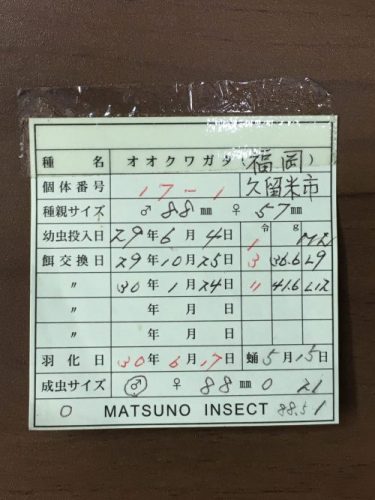 種 名 オオクワガタ (福岡)
個体番号 17-1 久留米市
種親サイズ ♂ 88 mm ♀ 57 mm
令 g
幼虫投入日 29年 6月 4日 1
餌交換日 29年 10月 25日 3 36.6 L9
〃 30年 1月 24日 〃 41.6 L12
〃 年 月 日
〃 年 月 日
羽化日 30年 6月 17日 蛹 5月 15日
成虫サイズ ♂ ♀ 88 mm 0 21
0 MATSUNO INSECT 88.51